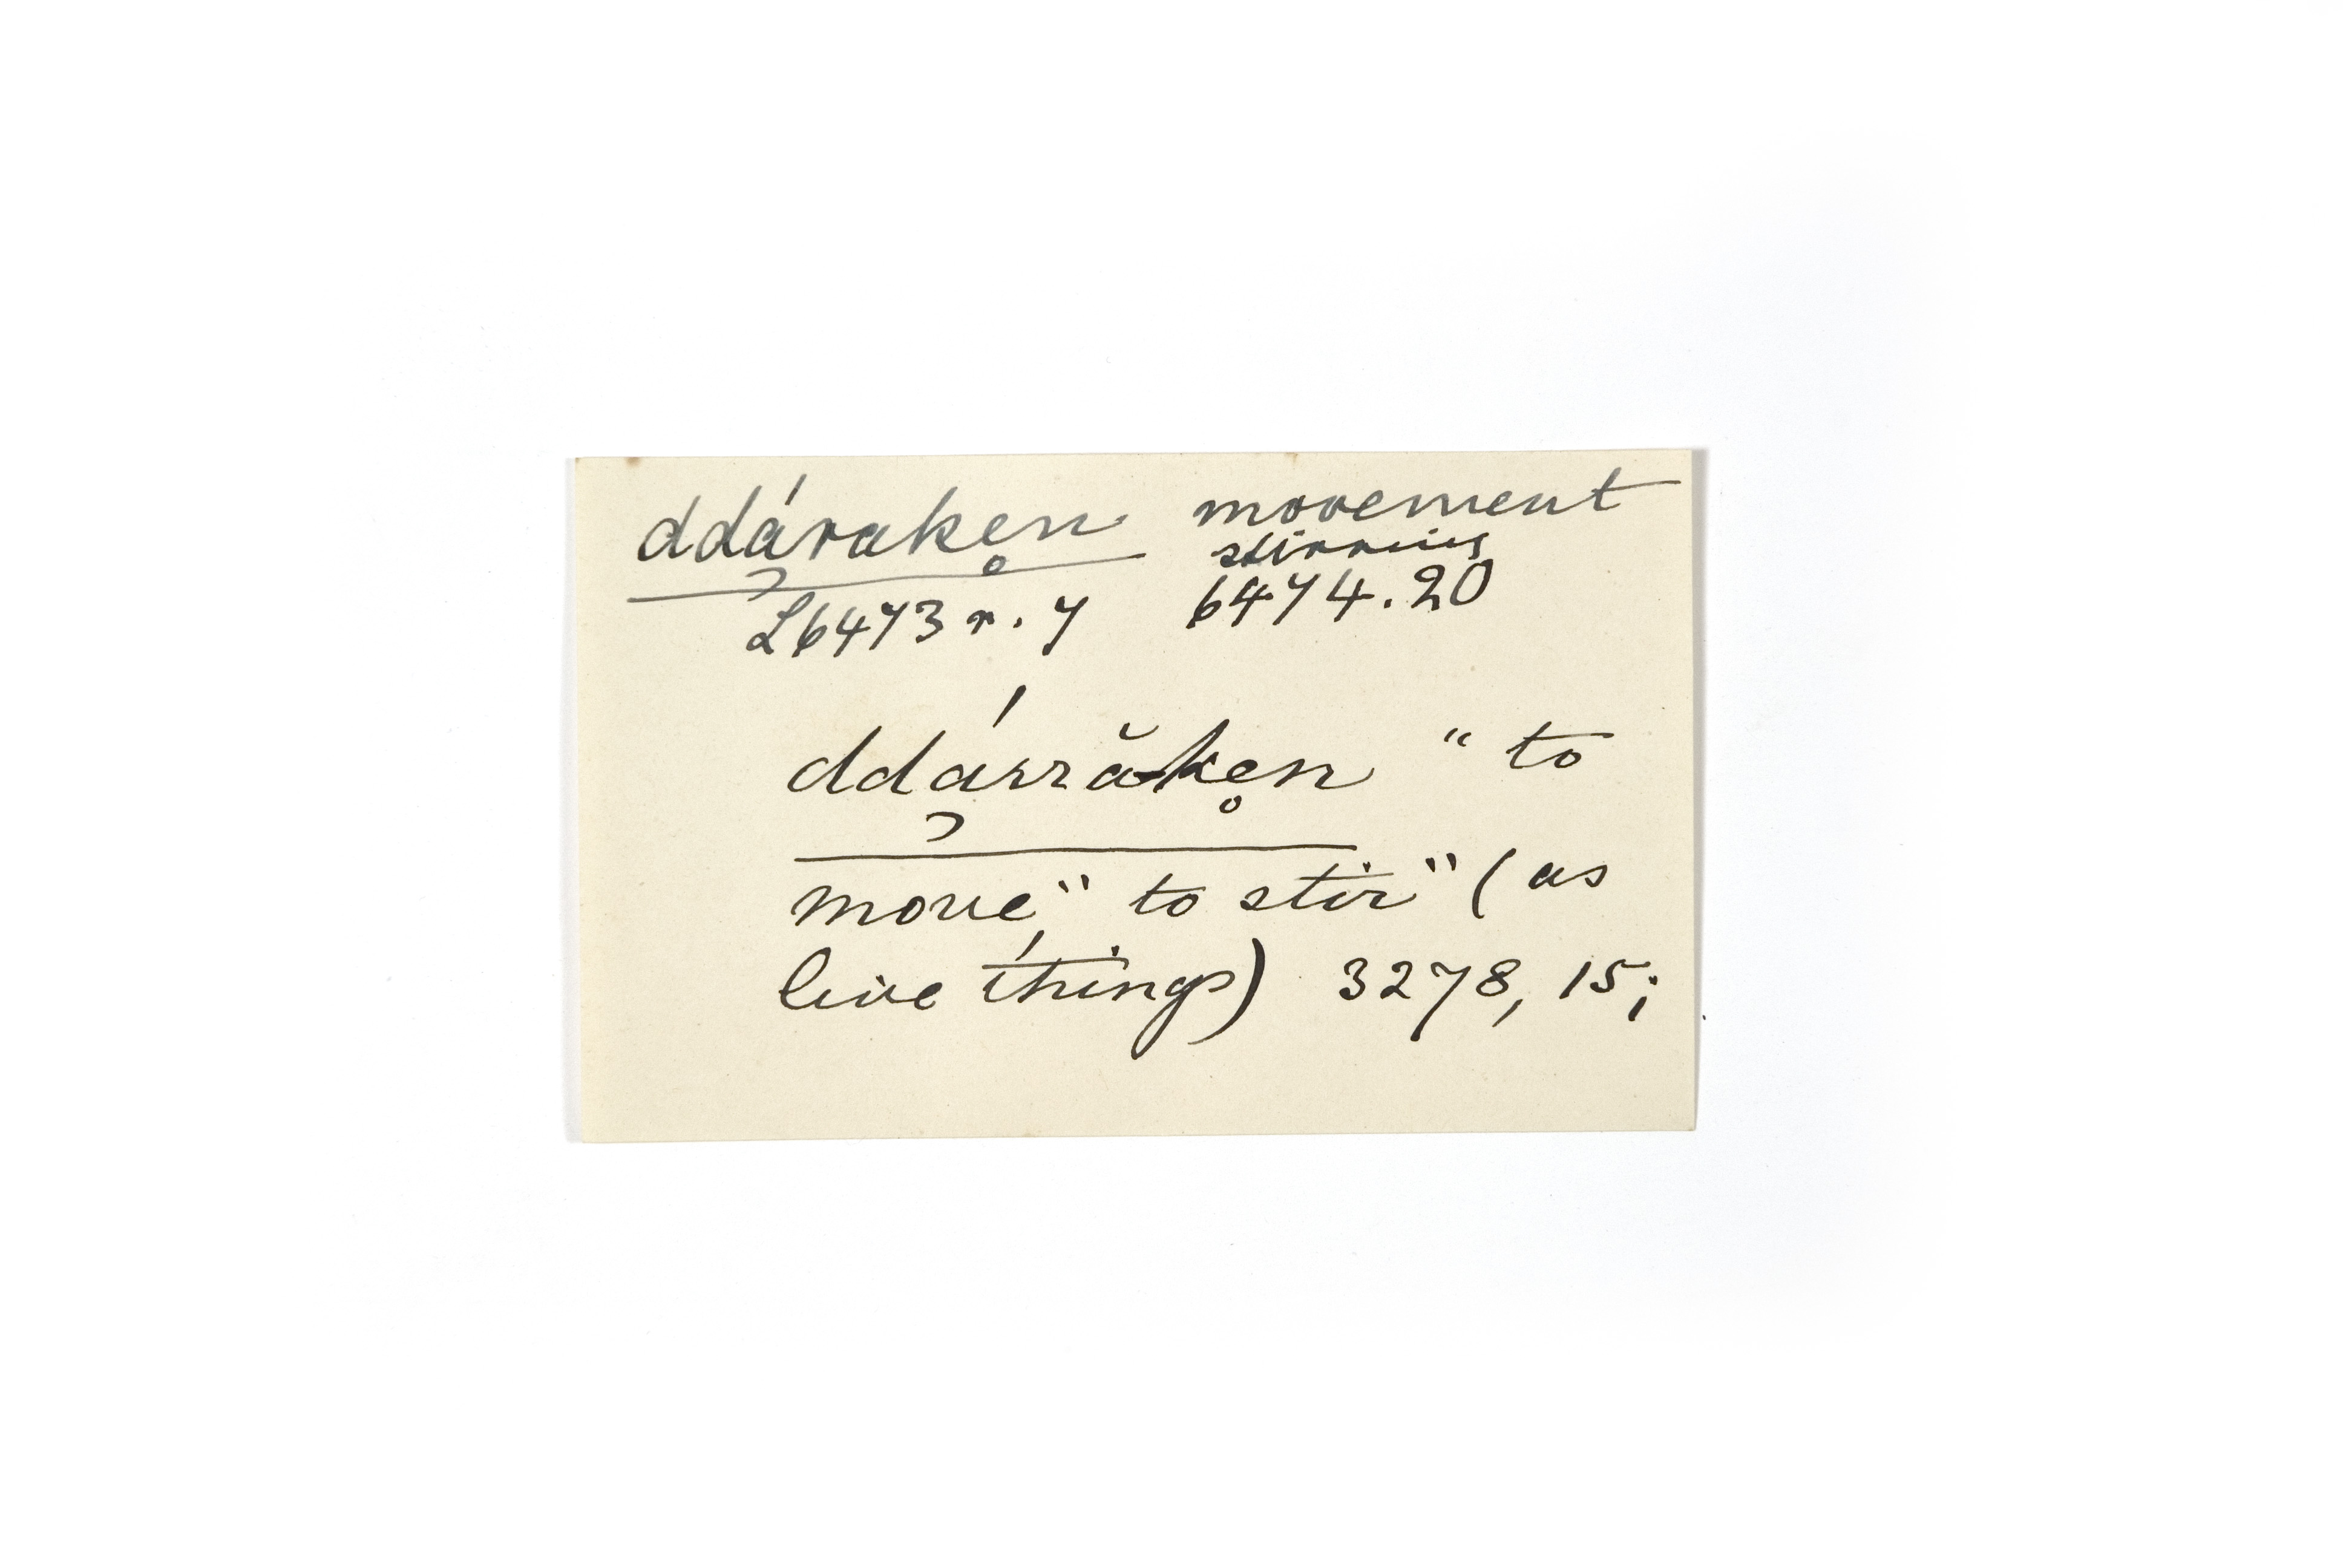 ddá̜rake̥n movement
stirring
L6473 r. 7 6474.20
ddá̜rrăke̥n “ to
move“ to stir“ (as
live things) 3278, 15;